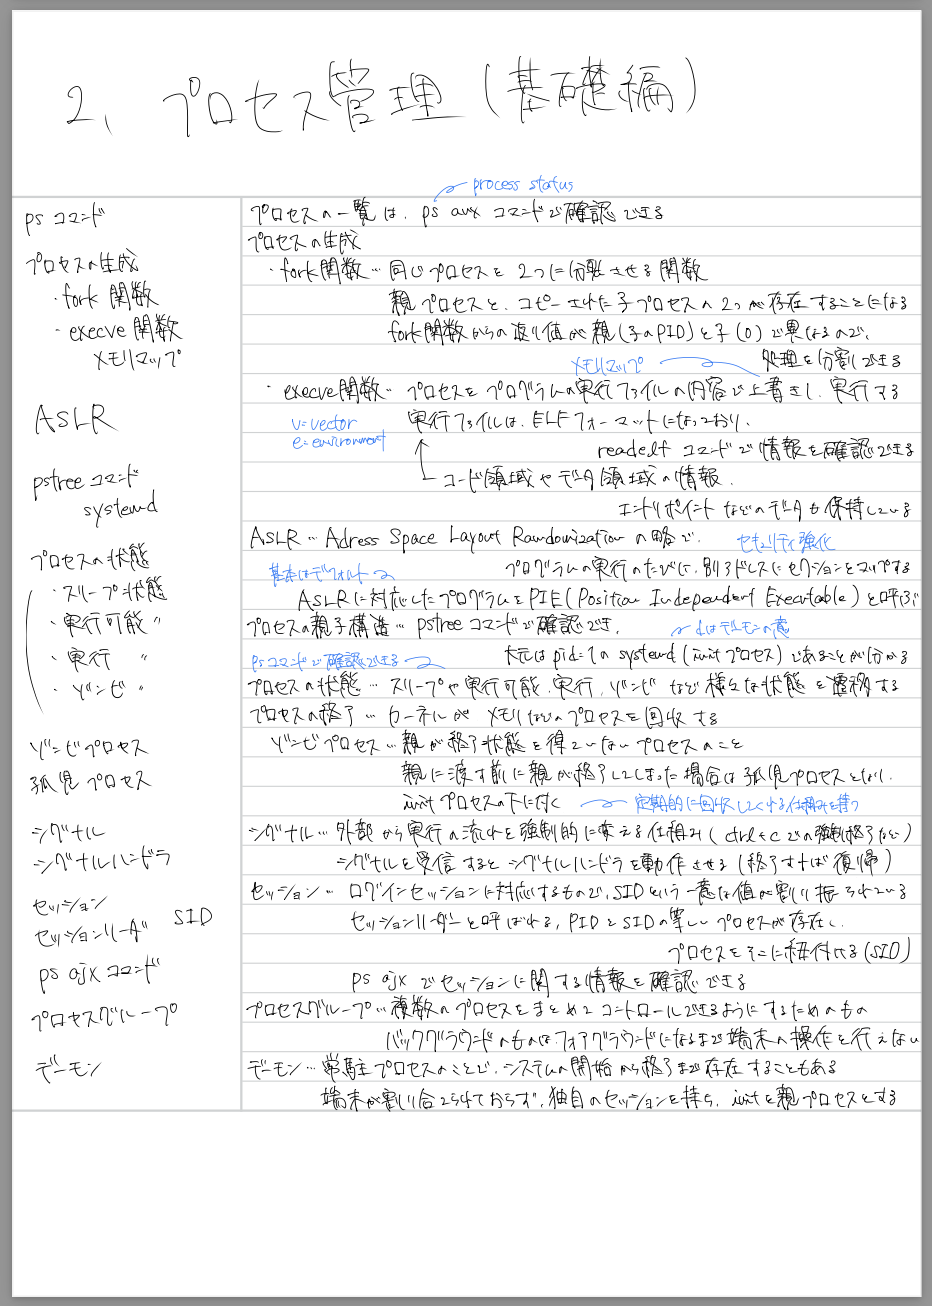 2、プロセス管理（基礎編）
process status
ps コマンド
プロセスの生成
・fork 関数
・execve 関数
メモリマップ
ASLR
pstree コマンド
systemd
プロセスの状態
・スリープ状態
・実行可能 〃
・実行 〃
・ゾンビ 〃
ゾンビプロセス
孤児プロセス
シグナル
シグナルハンドラ
セッション
セッションリーダ SID
ps ajx コマンド
プロセスグループ
デーモン
プロセスの一覧は、ps aux コマンドで確認できる
プロセスの生成
・fork関数…同じプロセスを2つに分裂させる関数
親プロセスと、コピーされた子プロセスの2つが存在することになる
fork関数からの返り値が親(子のPID)と子(0)で異なるので、
処理を分割できる
メモリマップ
・execve関数…プロセスをプログラムの実行ファイルの内容で上書きし、実行する
v=vector
e=environment
実行ファイルは、ELFフォーマットになっており、
readelf コマンドで情報を確認できる
コード領域やデータ領域の情報、
エントリポイントなどのデータを保持している
ASLR…Adress Space Layout Randomization の略で、
セキュリティ強化
プログラムの実行のたびに、別アドレスにセクションをマップする
基本はデフォルト
ASLRに対応したプログラムをPIE(Position Independent Executable)と呼ぶ
プロセスの親子構造…pstreeコマンドで確認でき、
dはデーモンの意
大元はpid=1のsystemd(initプロセス)であることが分かる
psコマンドで確認できる
プロセスの状態…スリープや実行可能、実行、ゾンビなど様々な状態を遷移する
プロセスの終了…カーネルがメモリなどのプロセスを回収する
ゾンビプロセス…親が終了状態を得ていないプロセスのこと
親に渡す前に親が終了してしまった場合は孤児プロセスとなり、
initプロセスの下に付く
定期的に回収してくれる仕組みを持つ
シグナル…外部から実行の流れを強制的に変える仕組み(ctrl+cでの強制終了など)
シグナルを受信するとシグナルハンドラを動作させる(終了すれば復帰)
セッション…ログインセッションに対応するもので、SIDという一意な値が割り振られている
セッションリーダーと呼ばれる、PIDとSIDの等しいプロセスが存在し、
プロセスをそこに紐付ける(SID)
ps ajx でセッションに関する情報を確認できる
プロセスグループ…複数のプロセスをまとめてコントロールできるようにするためのもの
バックグラウンドのものはフォアグラウンドになるまで端末の操作を行えない
デーモン…常駐プロセスのことで、システムの開始から終了まで存在することもある
端末が割り合てられておらず、独自のセッションを持ち、initを親プロセスとする